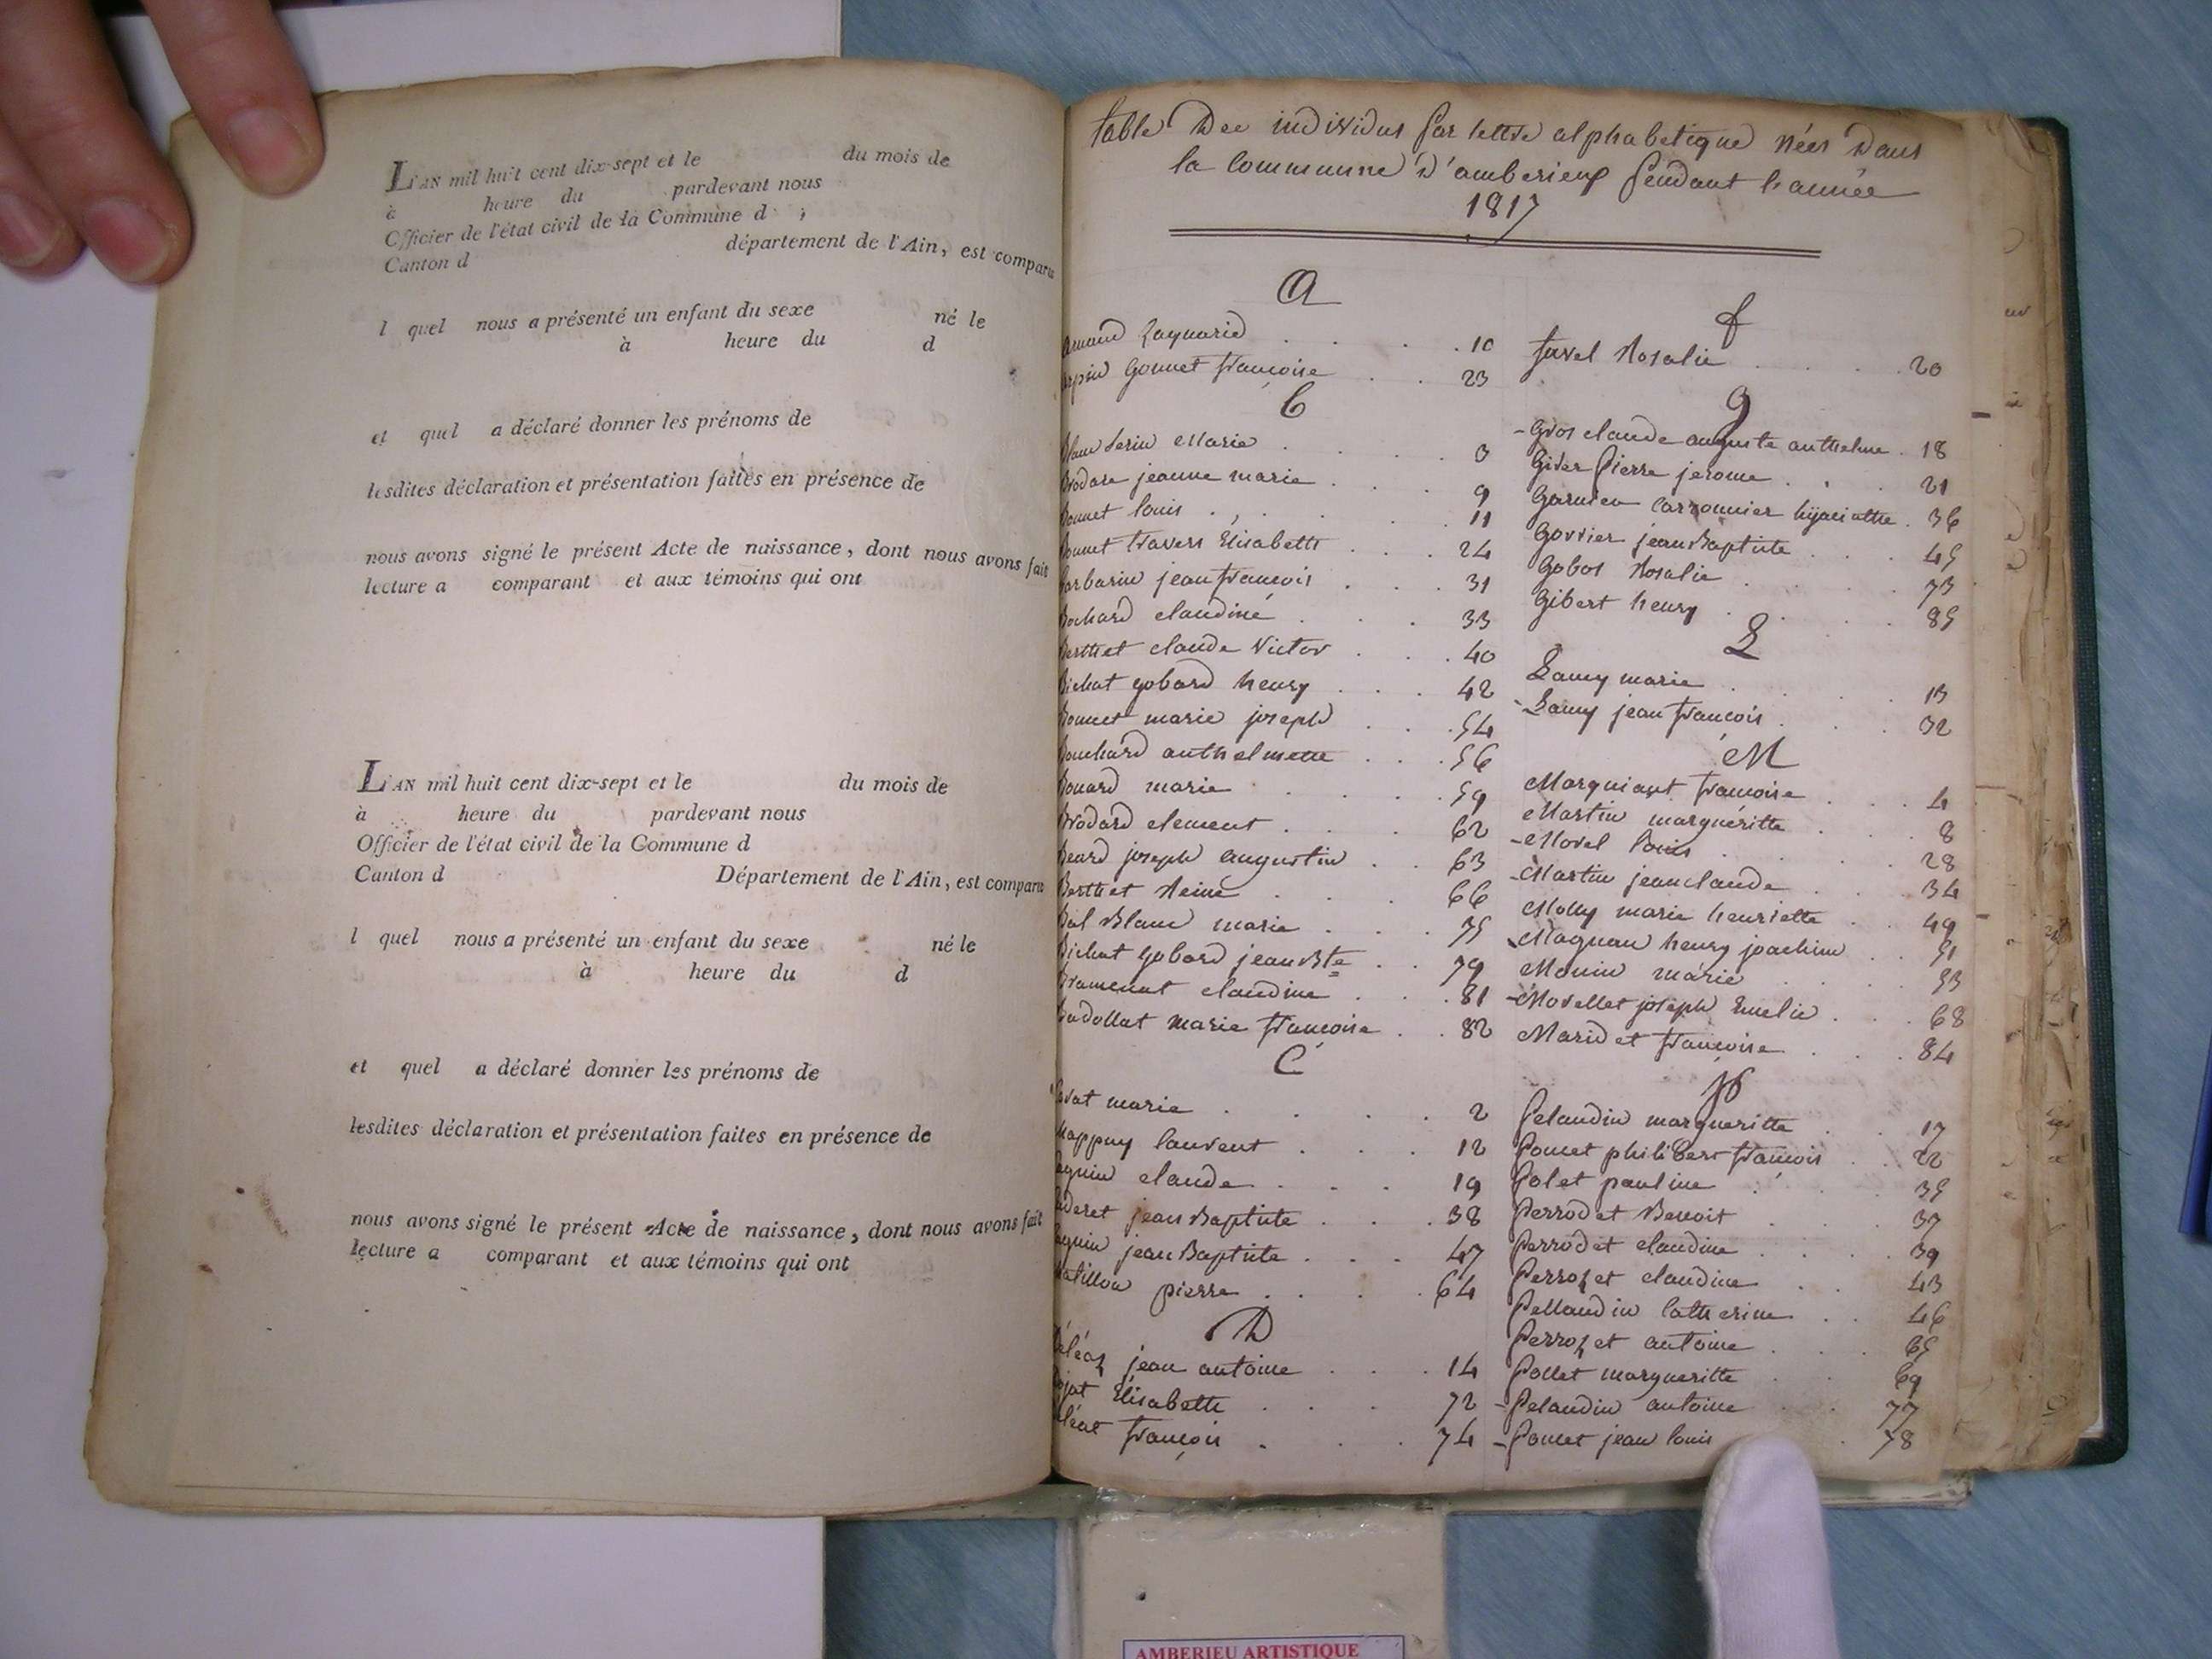 L'AN mil huit cent dix-sept et le du mois de
à heure du pardevant nous
Officier de l'état civil de la Commune d
Canton d département de l'Ain, est comparu
l quel nous a présenté un enfant du sexe né le
à heure du d
et quel a déclaré donner les prénoms de
lesdites déclaration et présentation faites en présence de
nous avons signé le présent Acte de naissance, dont nous avons fait
lecture a comparant et aux témoins qui ont
L'AN mil huit cent dix-sept et le du mois de
à heure du pardevant nous
Officier de l'état civil de la Commune d
Canton d Département de l'Ain, est comparu
l quel nous a présenté un enfant du sexe né le
à heure du d
et quel a déclaré donner les prénoms de
lesdites déclaration et présentation faites en présence de
nous avons signé le présent Acte de naissance, dont nous avons fait
lecture a comparant et aux témoins qui ont
table Des individus par lettre alphabetique nées Dans
la Commune D'amberieux pendant l'année
1817
A
10
Gonnet françoise 23
B
Marie 3
jeanne marie 9
Bonnet louis 11
Bonnet travers Elisabeth 24
Barbarin jean françois 31
Bochard claudine 33
Berthet claude Victor 40
Bichat gobard henry 42
Bonnet marie joseph 54
Bouchard anthelmette 56
marie 59
Brodard clement 62
joseph augustin 63
Berthet Reine 66
Bal Blanc marie 75
Bichat gobard jean Bte 79
Bramenat claudine 81
marie françoise 82
C
marie 2
laurent 12
claude 19
jean Baptiste 38
jean Baptiste 47
pierre 64
D
jean antoine 14
Elisabeth 72
françois 74
f
favel Rosalie 20
g
- Gros claude auguste anthelme 18
pierre jerome 21
hyacinthe 36
jean Baptiste 45
Gobos Rosalie 73
Gibert henry 85
L
Lamy marie 13
- Lamy jean françois 32
M
françoise 4
Martin margueritte 8
- Morel louis 28
- Martin jean claude 34
Molly marie henriette 49
- Magnan henry joachim 51
Monin marie 53
- Morellet joseph Emelie 68
Maridet françoise 84
P
Pelaudin margueritte 17
Poncet philibert françois 22
Polet pauline 35
Perrodet Benoit 37
Perrodet claudine 39
Perrozet claudine 43
Pellaudin Catherine 46
Perrozet antoine 65
Pollet margueritte 69
- Pelaudin antoine 77
- Poncet jean louis 78
AMBERIEU ARTISTIQUE